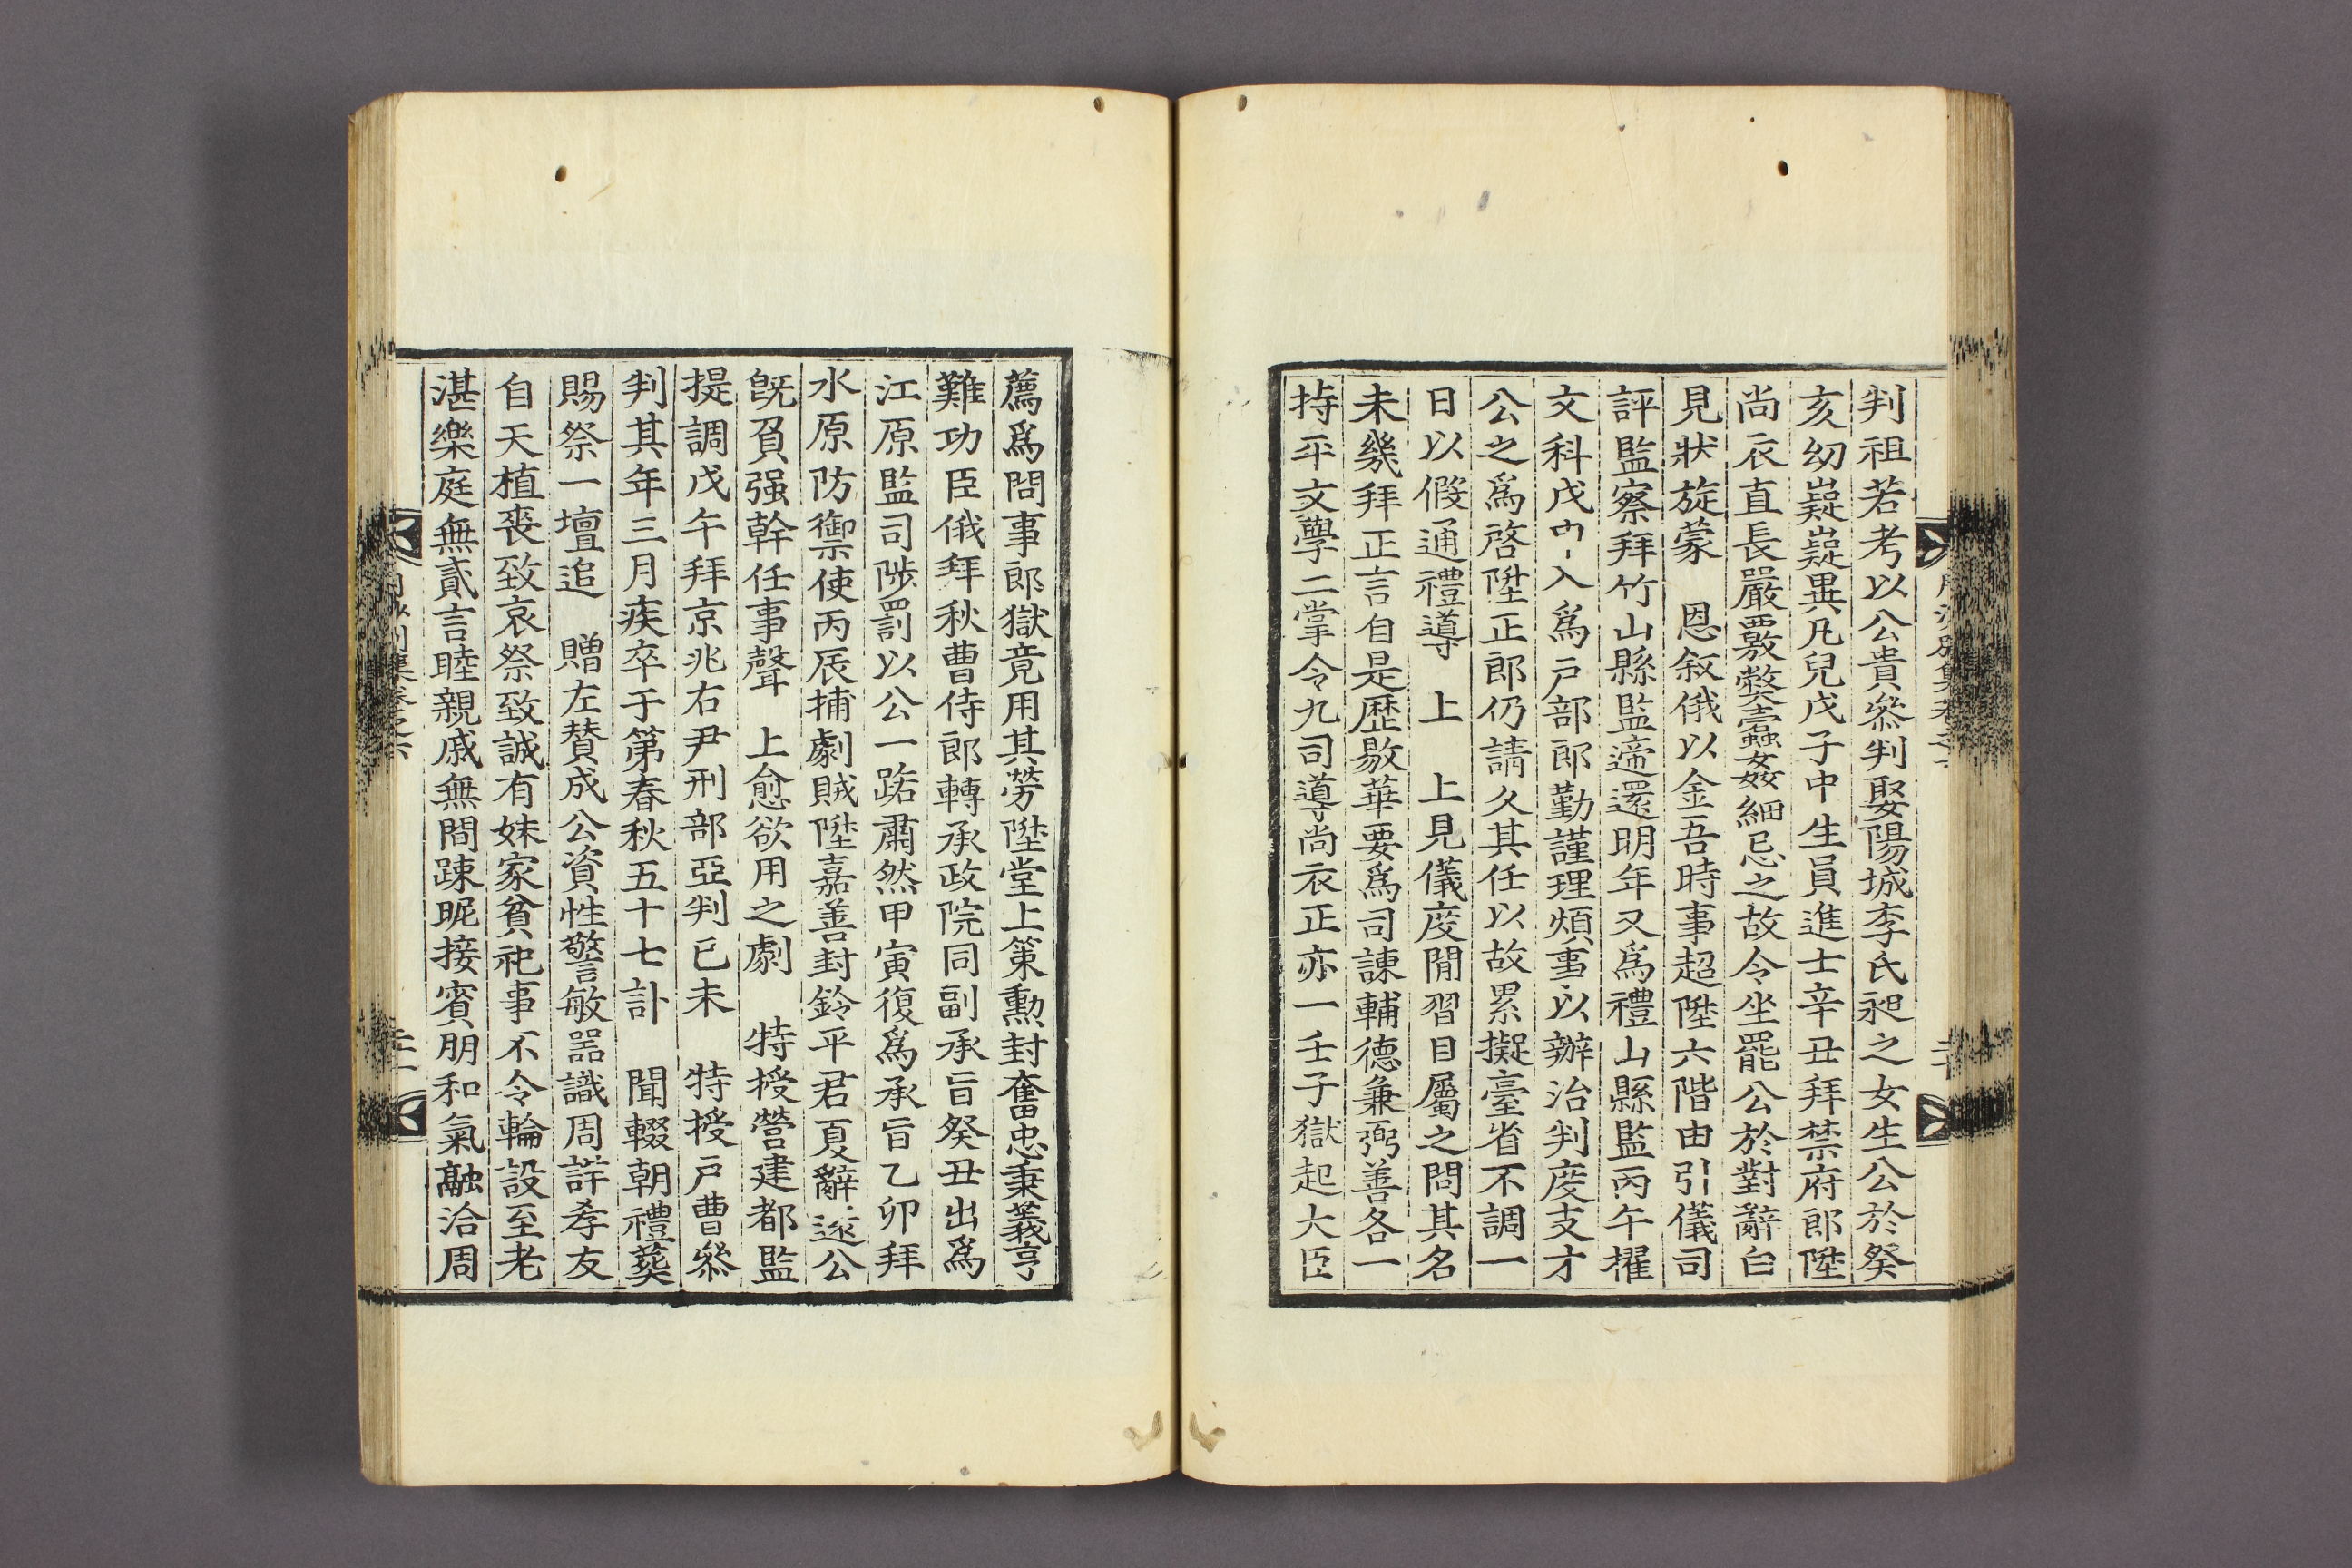 判祖若考以公貴叅判娶陽城李氏昶之女生公於癸
亥幼嶷嶷異凡兒戊子中生員進士辛丑拜禁府郎陞
尚衣直長嚴覈弊蠧姦細忌之故令坐罷公於對辭白
見狀旋蒙　恩叙俄以金吾時事超陞六階由引儀司
評監察拜竹山縣監遞還明年又爲禮山縣監丙午擢
文科戊申入爲戶部郎勤謹理煩事以辦治判度支才
公之爲啓陞正郎仍請久其任以故累擬臺省不調一
日以假通禮導　上　上見儀度閒習目屬之問其名
未幾拜正言自是歷敭華要爲司諫輔德兼弼善各一
持平文學二掌令九司導尚衣正亦一壬子獄起大臣
薦爲問事郎獄竟用其勞陞堂上策勳封奮忠秉義亨
難功臣俄拜秋曹侍郎轉承政院同副承旨癸丑出爲
江原監司陟罰以公一路肅然甲寅復爲承旨乙卯拜
水原防禦使丙辰捕劇賊陞嘉善封鈴平君夏辭遞公
旣負强幹任事聲　上愈欲用之劇　特授營建都監
提調戊午拜京兆右尹刑部亞判已未　特授戶曹叅
判其年三月疾卒于第春秋五十七訃　聞輟朝禮葬
賜祭一壇追　贈左贊成公資性警敏器識周詳孝友
自天植喪致哀祭致誠有妹家貧祀事不令輪設至老
湛樂庭無貳言睦親戚無間踈昵接賓朋和氣融洽周